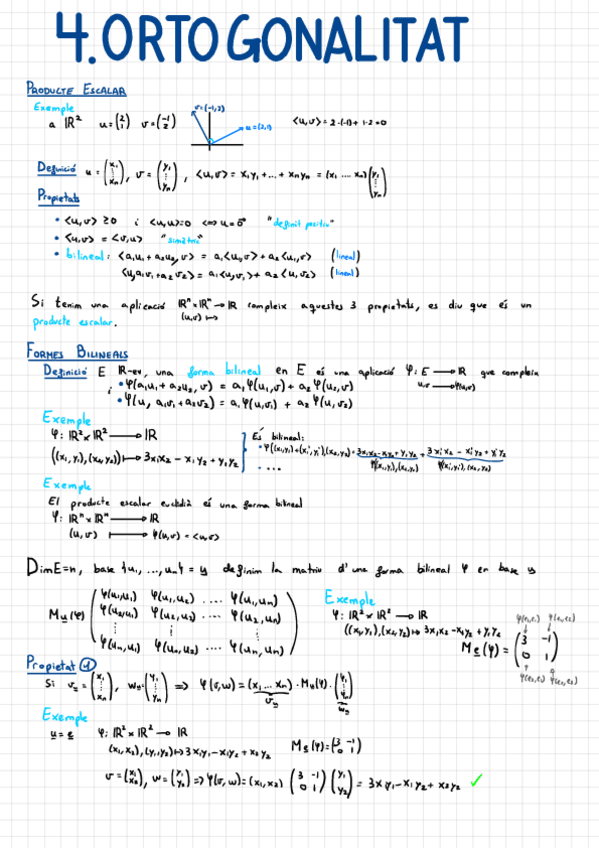 4. ORTOGONALITAT
PRODUCTE ESCALAR
Exemple
a ℝ² u=(2 1) v=(-1 2) v=(-1,2) u=(2,1) <u,v> = 2·(-1)+1·2=0
Definició u=(x₁ ⋮ xₙ), v=(y₁ ⋮ yₙ), <u,v> = x₁y₁+...+xₙyₙ = (x₁ ... xₙ)(y₁ ⋮ yₙ)
Propietats
• <u,v> ≥0 i <u,u>=0 ⟺ u=0⃗ "definit positiu"
• <u,v> = <v,u> "simètric"
• bilineal: <a₁u₁+a₂u₂,v> = a₁<u₁,v>+a₂<u₂,v> (lineal)
<u,a₁v₁+a₂v₂> = a₁<u,v₁>+a₂<u,v₂> (lineal)
Si tenim una aplicació ℝⁿ×ℝⁿ→ℝ compleix aquestes 3 propietats, es diu que és un
(u,v)↦
producte escalar.
FORMES BILINEALS
Definició E ℝ-ev, una forma bilineal en E és una aplicació φ: E → ℝ que compleix
u,v → φ(u,v)
• φ(a₁u₁+a₂u₂,v) = a₁φ(u₁,v)+a₂φ(u₂,v)
i • φ(u,a₁v₁+a₂v₂) = a₁φ(u,v₁)+a₂φ(u,v₂)
Exemple
φ: ℝ²×ℝ² → ℝ
((x₁,y₁),(x₂,y₂)) ↦ 3x₁x₂-x₁y₂+y₁y₂
És bilineal:
• φ((x₁,y₁)+(x₁',y₁'),(x₂,y₂)) = 3x₁x₂-x₁y₂+y₁y₂ + 3x₁'x₂-x₁'y₂+y₁'y₂
φ(x₁,y₁),(x₂,y₂) φ(x₁',y₁'),(x₂,y₂)
• ....
Exemple
El producte escalar euclidià és una forma bilineal
φ: ℝⁿ×ℝⁿ → ℝ
(u,v) ↦ φ(u,v)=<u,v>
DimE=n, base {u₁,...,uₙ} = u definim la matriu d'una forma bilineal φ en base u
M_u(φ) (φ(u₁,u₁) φ(u₁,u₂) .... φ(u₁,uₙ)
φ(u₂,u₁) φ(u₂,u₂) .... φ(u₂,uₙ)
⋮ ⋮ ⋮
φ(uₙ,u₁) φ(uₙ,u₂) .... φ(uₙ,uₙ))
Exemple
φ: ℝ²×ℝ² → ℝ
((x₁,y₁),(x₂,y₂)) ↦ 3x₁x₂-x₁y₂+y₁y₂
φ(e₁,e₁) φ(e₁,e₂)
M_e(φ) = (3 -1 0 1)
φ(e₂,e₁) φ(e₂,e₂)
Propietat 1
Si v_u=(x₁ ⋮ xₙ), w_u=(y₁ ⋮ yₙ) ⟹ φ(v,w) = (x₁ ... xₙ)·M_u(φ)·(y₁ ⋮ yₙ)
v_u w_u
Exemple
u=e φ: ℝ²×ℝ² → ℝ
(x₁,x₂),(y₁,y₂) ↦ 3x₁y₁-x₁y₂+x₂y₂ M_e(φ)=(3 -1 0 1)
v=(x₁ x₂), w=(y₁ y₂) ⟹ φ(v,w)=(x₁,x₂) (3 -1 0 1) (y₁ y₂) = 3x₁y₁-x₁y₂+x₂y₂ ✓